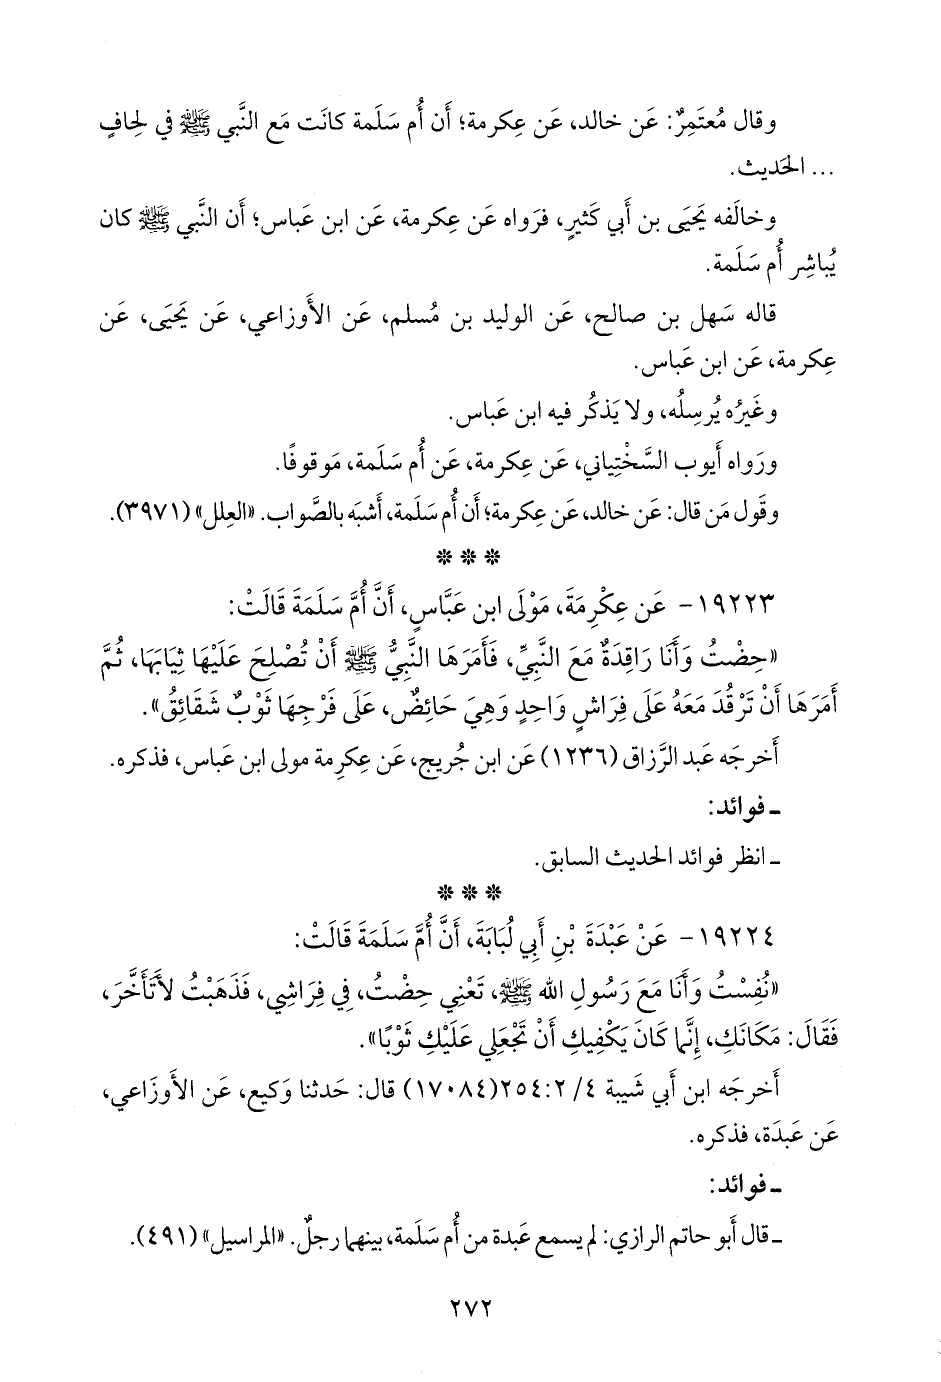 وقال مُعتَمِرٌ: عَن خالد، عَن عِكرمة؛ أَن أُم سَلَمة كانَت مَع النَّبي ﷺ في لِحافٍ
... الحَديث.
وخالَفه يَحيَى بن أَبي كَثيرٍ، فرَواه عَن عِكرِمة، عَن ابن عَباس؛ أَن النَّبي ﷺ كان
يُباشِر أُم سَلَمة.
قاله سَهل بن صالح، عَن الوليد بن مُسلم، عَن الأَوزاعي، عَن يَحيَى، عَن
عِكرمة، عَن ابن عَباس.
وغَيرُه يُرسِلُه، ولا يَذكُر فيه ابن عَباس.
ورَواه أَيوب السَّخْتِياني، عَن عِكرمة، عَن أُم سَلَمة، مَوقوفًا.
وقَول مَن قال: عَن خالد، عَن عِكرمة؛ أَن أُم سَلَمة، أَشبَه بالصَّواب. «العِلل» (٣٩٧١).
* * *
١٩٢٢٣- عَن عِكْرِمَةَ، مَوْلَى ابن عَبَّاسٍ، أَنَّ أُمَّ سَلَمَةَ قَالَتْ:
«حِضْتُ وَأَنَا رَاقِدَةٌ مَعَ النَّبِيِّ، فَأَمَرَهَا النَّبِيُّ ﷺ أَنْ تُصْلِحَ عَلَيْهَا ثِيَابَهَا، ثُمَّ
أَمَرَهَا أَنْ تَرْقُدَ مَعَهُ عَلَى فِرَاشٍ وَاحِدٍ وَهِيَ حَائِضٌ، عَلَى فَرْجِهَا ثَوْبٌ شَقَائِقُ».
أَخرجَه عَبد الرَّزاق (١٢٣٦) عَن ابن جُريج، عَن عِكرِمة مولى ابن عَباس، فذكره.
ـ فوائد:
ـ انظر فوائد الحديث السابق.
* * *
١٩٢٢٤- عَنْ عَبْدَةَ بْنِ أَبِي لُبَابَةَ، أَنَّ أُمَّ سَلَمَةَ قَالَتْ:
«نُفِسْتُ وَأَنَا مَعَ رَسُولِ الله ﷺ، تَعْنِي حِضْتُ، فِي فِرَاشِي، فَذَهَبْتُ لأَتَأَخَّرَ،
فَقَالَ: مَكَانَكِ، إِنَّمَا كَانَ يَكْفِيكِ أَنْ تَجْعَلِي عَلَيْكِ ثَوْبًا».
أَخرجَه ابن أَبي شَيبة ٤/ ٢:٢٥٤(١٧٠٨٤) قال: حَدثنا وَكيع، عَن الأَوزَاعي،
عَن عَبدَة، فذكره.
ـ فوائد:
ـ قال أَبو حاتم الرازي: لم يسمع عَبدة من أُم سَلَمة، بينهما رجلٌ. «المراسيل» (٤٩١).
٢٧٢